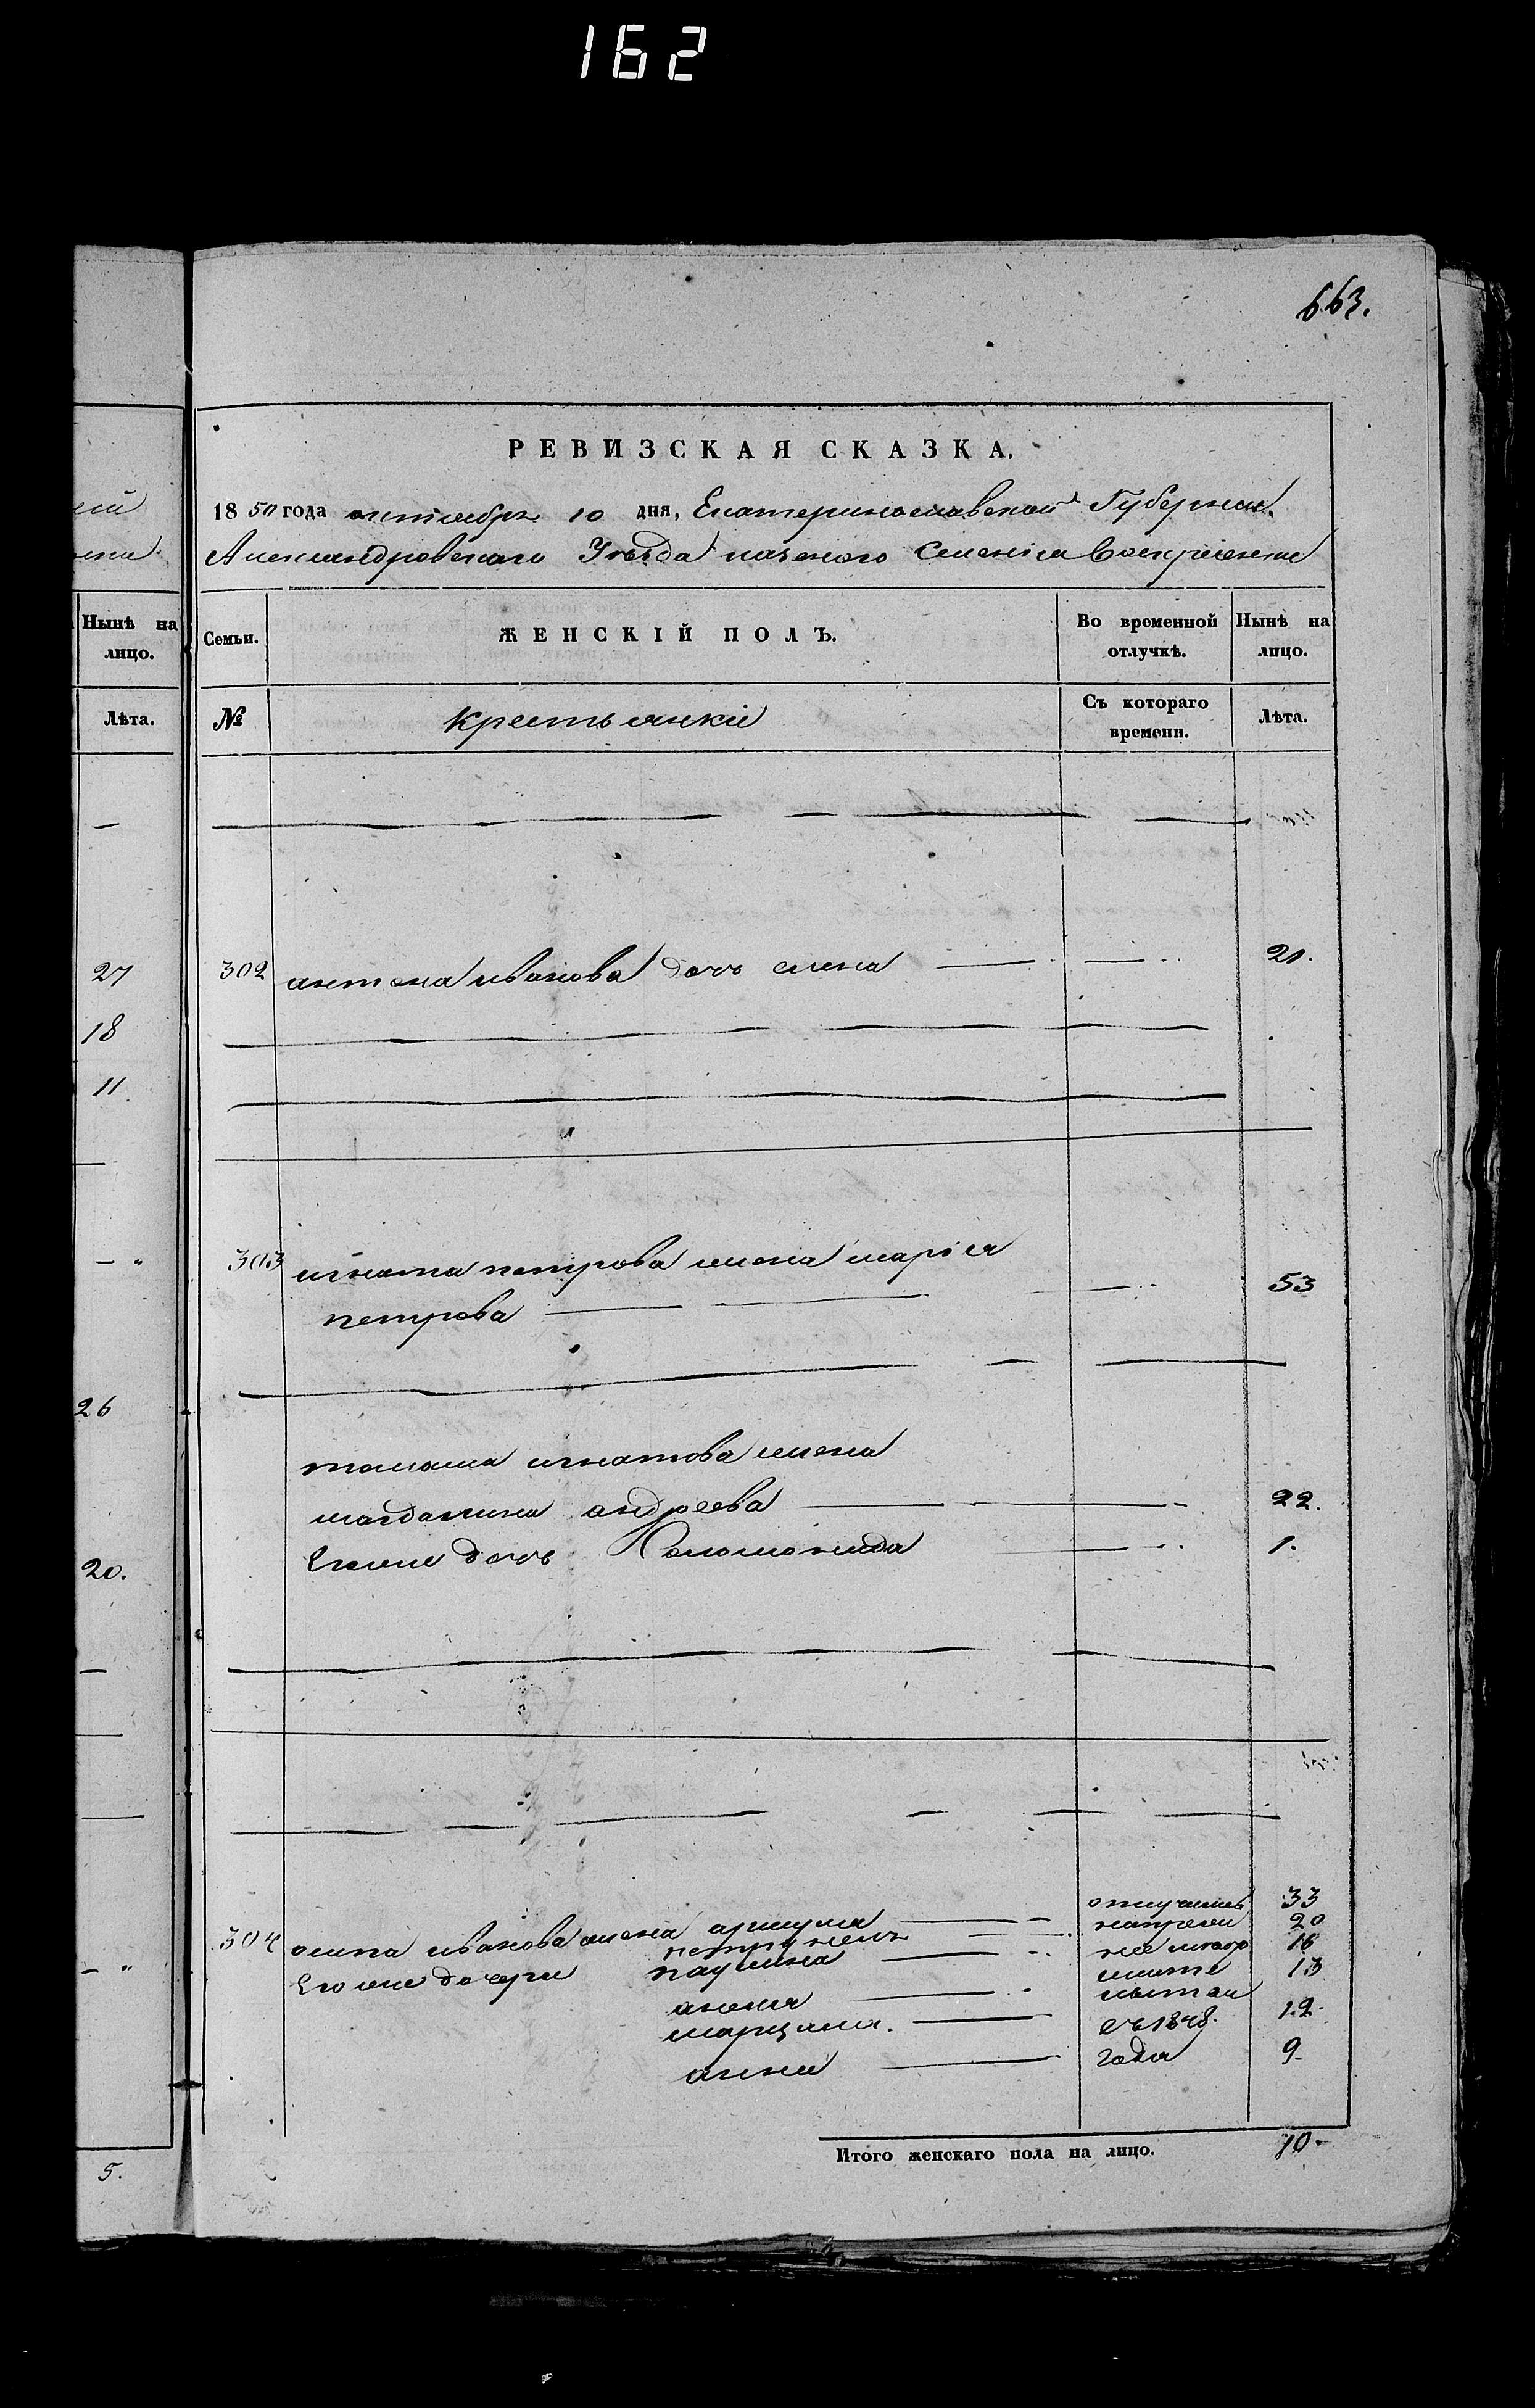 162
663.
РЕВИЗСКАЯ СКАЗКА.
1850 года октября 10 дня, Екатеринославской Губернии
Александровскаго Уезда казенного Селенія Воскресенки
Нынѣ на лицо.
Лѣта.
Семьи.
ЖЕНСКІЙ ПОЛЪ.
Во временной отлучкѣ.
Нынѣ на лицо.
№
крестьянки
Съ котораго времени.
Лѣта.
27
302 антона иванова дочь елена 21.
18
11
303 игната петрова жена марія
петрова 53
26
томаша игнатова жена
магдалина андреева 22.
20.
Егоже дочь Соломонида 1.
304 осипа иванова жена 33
Егоже дочери 20
паулина 16
13
марцела. съ 1848. 12.
анна года 9.
Итого женскаго пола на лицо. 10.
5.